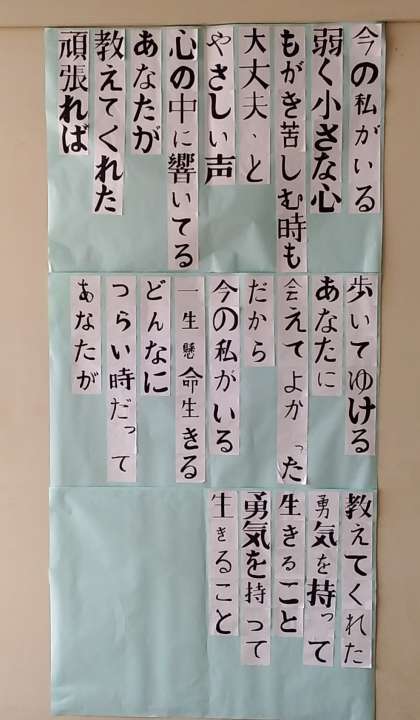 今の私がいる
弱く小さな心
もがき苦しむ時も
大丈夫、と
やさしい声
心の中に響いてる
あなたが
教えてくれた
頑張れば
歩いてゆける
あなたに
会えてよかった
だから
今の私がいる
一生懸命生きる
どんなに
つらい時だって
あなたが
教えてくれた
勇気を持って
生きること
勇気を持って
生きること